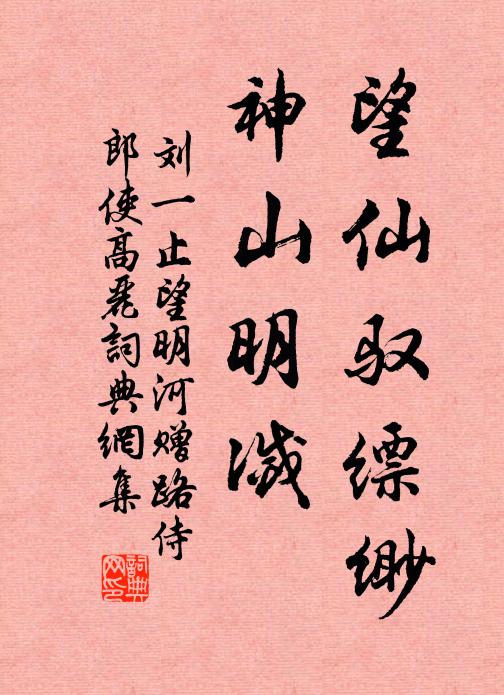 望仙驭缥缈
神山明滅
刘一止望明河赠路侍
郎使高丽詞典網集
詞典网印